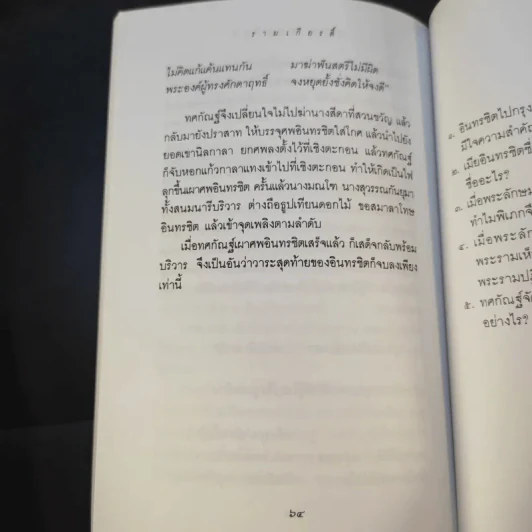 รามเกียรติ์
ไม่คิดแก้แค้นแทนกัน มาฆ่าฟันสตรีไม่มีผิด
พระองค์ผู้ทรงศักดาฤทธิ์ จงหยุดยั้งชั่งคิดให้จงดี"
ทศกัณฐ์จึงเปลี่ยนใจไม่ไปฆ่านางสีดาที่สวนขวัญ แล้ว
กลับมายังปราสาท ให้บรรจุศพอินทรชิตใส่โกศ แล้วนำไปยัง
ยอดเขานิลกาลา ยกศพลงตั้งไว้ที่เชิงตะกอน แล้วทศกัณฐ์
ก็จับหอกแก้วกาลาแทงเข้าไปที่เชิงตะกอน ทำให้เกิดเป็นไฟ
ลุกขึ้นเผาศพอินทรชิต ครั้นแล้วนางมณโฑ นางสุวรรณกันยุมา
ทั้งสนมนารีบริวาร ต่างถือธูปเทียนดอกไม้ ขอสมาลาโทษ
อินทรชิต แล้วเข้าจุดเพลิงตามลำดับ
เมื่อทศกัณฐ์เผาศพอินทรชิตเสร็จแล้ว ก็เสด็จกลับพร้อม
บริวาร จึงเป็นอันว่าวาระสุดท้ายของอินทรชิตก็จบลงเพียง
เท่านี้
๖๔
๑. อินทรชิตไปกรุง
มีใจความสำคัญ
๒. เมียอินทรชิตชื่
ชื่ออะไร?
๓. เมื่อพระลักษม
ทำไมพิเภกจึ
๔. เมื่อพระลัก
พระรามเห็
พระรามปฏิ
๕. ทศกัณฐ์จัด
อย่างไร?